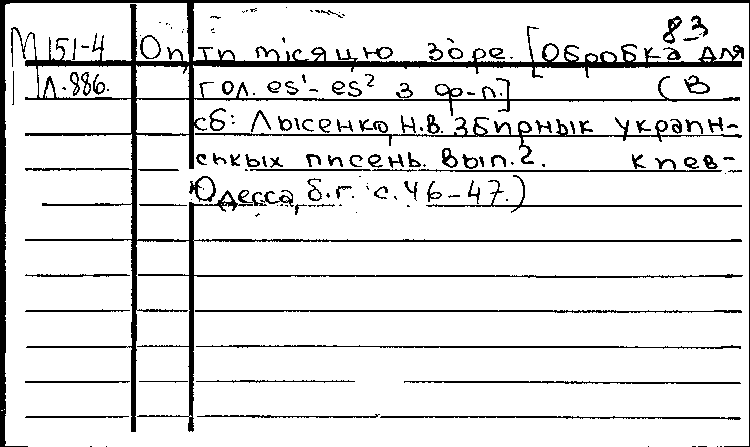 83
М 151-4 Оп, ти місяцю зоре. [Обробка для
Л.886. гол. es¹- es² з ф-п.] (В
сб: Лысенко, Н.В. Збирнык украпн-
ськых писень. Вып.2. Кпев-
Одесса, б.г. с.46-47.)